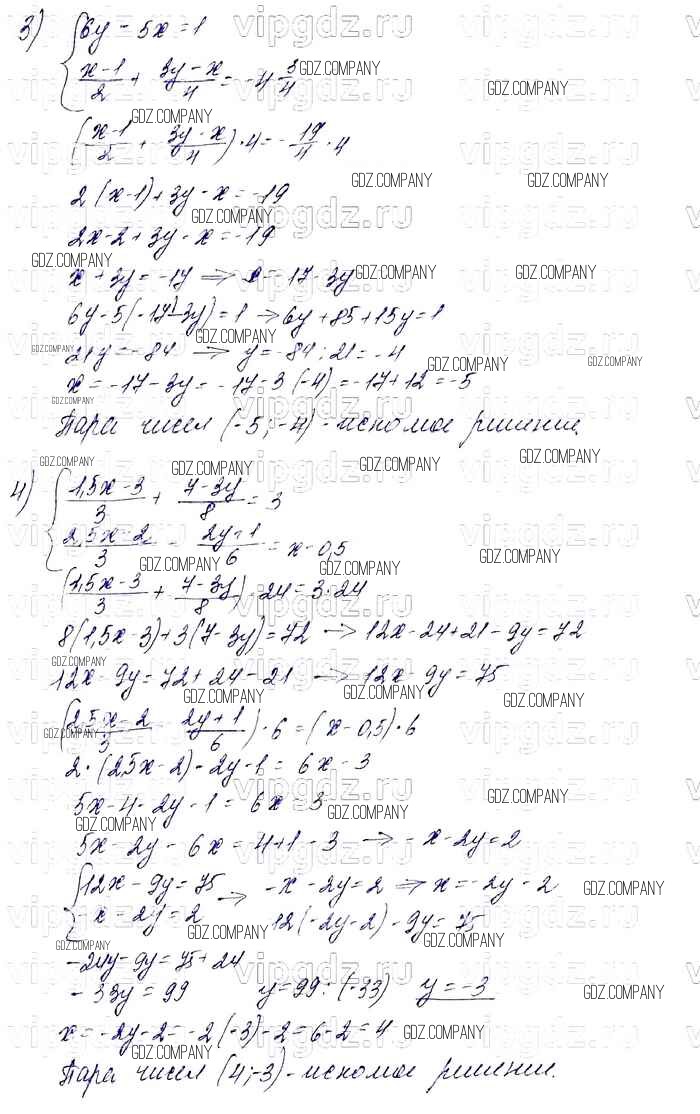 3) { 6y - 5x = 1
(x-1)/2 + (3y-x)/4 = -4 3/4
((x-1)/2 + (3y-x)/4) · 4 = -19/4 · 4
2(x-1) + 3y - x = -19
2x - 2 + 3y - x = -19
x + 3y = -17 => x = -17 - 3y
6y - 5(-17-3y) = 1 → 6y + 85 + 15y = 1
21y = -84 → y = -84 : 21 = -4
x = -17 - 3y = -17 - 3(-4) = -17 + 12 = -5
Пара чисел (-5; -4) - искомое решение.
4) { (1,5x-3)/3 + (7-3y)/8 = 3
(2,5x-2)/3 - (2y+1)/6 = x - 0,5
((1,5x-3)/3 + (7-3y)/8) · 24 = 3 · 24
8(1,5x-3) + 3(7-3y) = 72 → 12x - 24 + 21 - 9y = 72
12x - 9y = 72 + 24 - 21 → 12x - 9y = 75
((2,5x-2)/3 - (2y+1)/6) · 6 = (x - 0,5) · 6
2 · (2,5x - 2) - 2y - 1 = 6x - 3
5x - 4 - 2y - 1 = 6x - 3
5x - 2y - 6x = 4 + 1 - 3 → -x - 2y = 2
{ 12x - 9y = 75 → -x - 2y = 2 => x = -2y - 2
-x - 2y = 2 12(-2y-2) - 9y = 75
-24y - 9y = 75 + 24
-33y = 99 y = 99 : (-33) y = -3
x = -2y - 2 = -2(-3) - 2 = 6 - 2 = 4
Пара чисел (4; -3) - искомое решение.
vipgdz.ru
GDZ.COMPANY